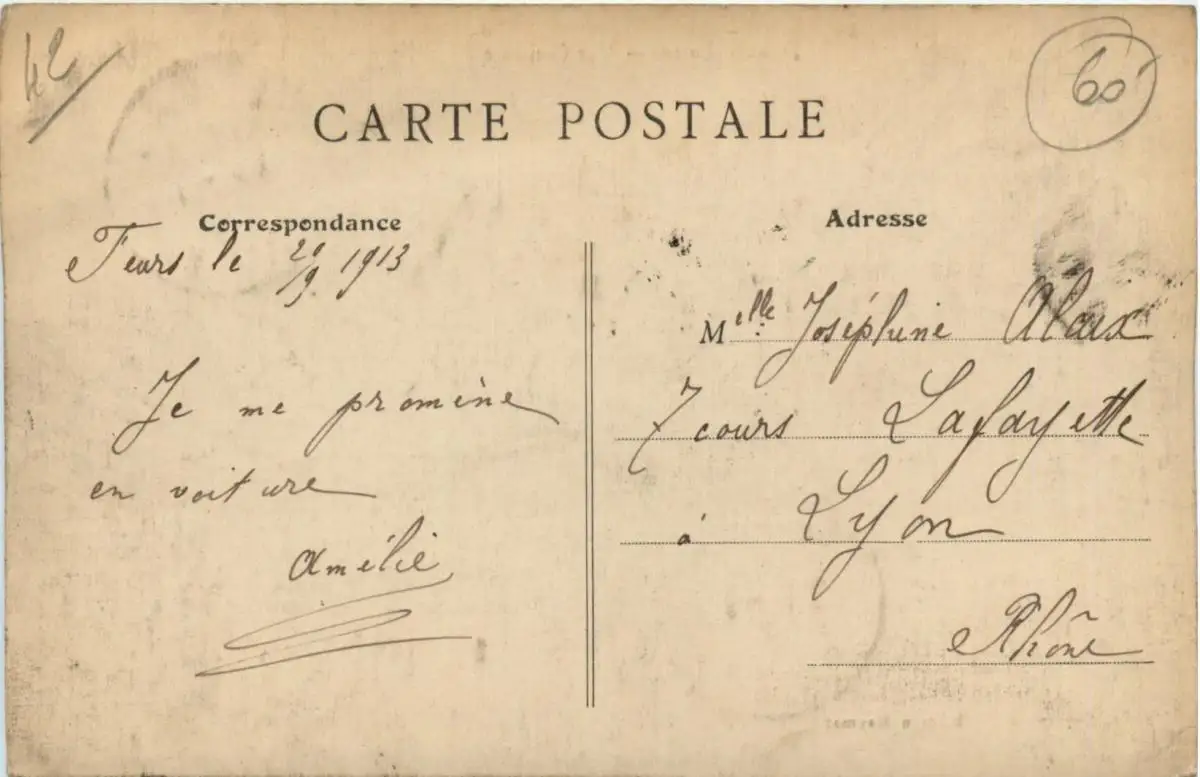 42
60
CARTE POSTALE
Correspondance
Feurs le 29/9 1913
Je me promène
en voiture
Amélie
Adresse
Melle Joséphine Alaix
7 cours Lafayette
à Lyon
Rhône